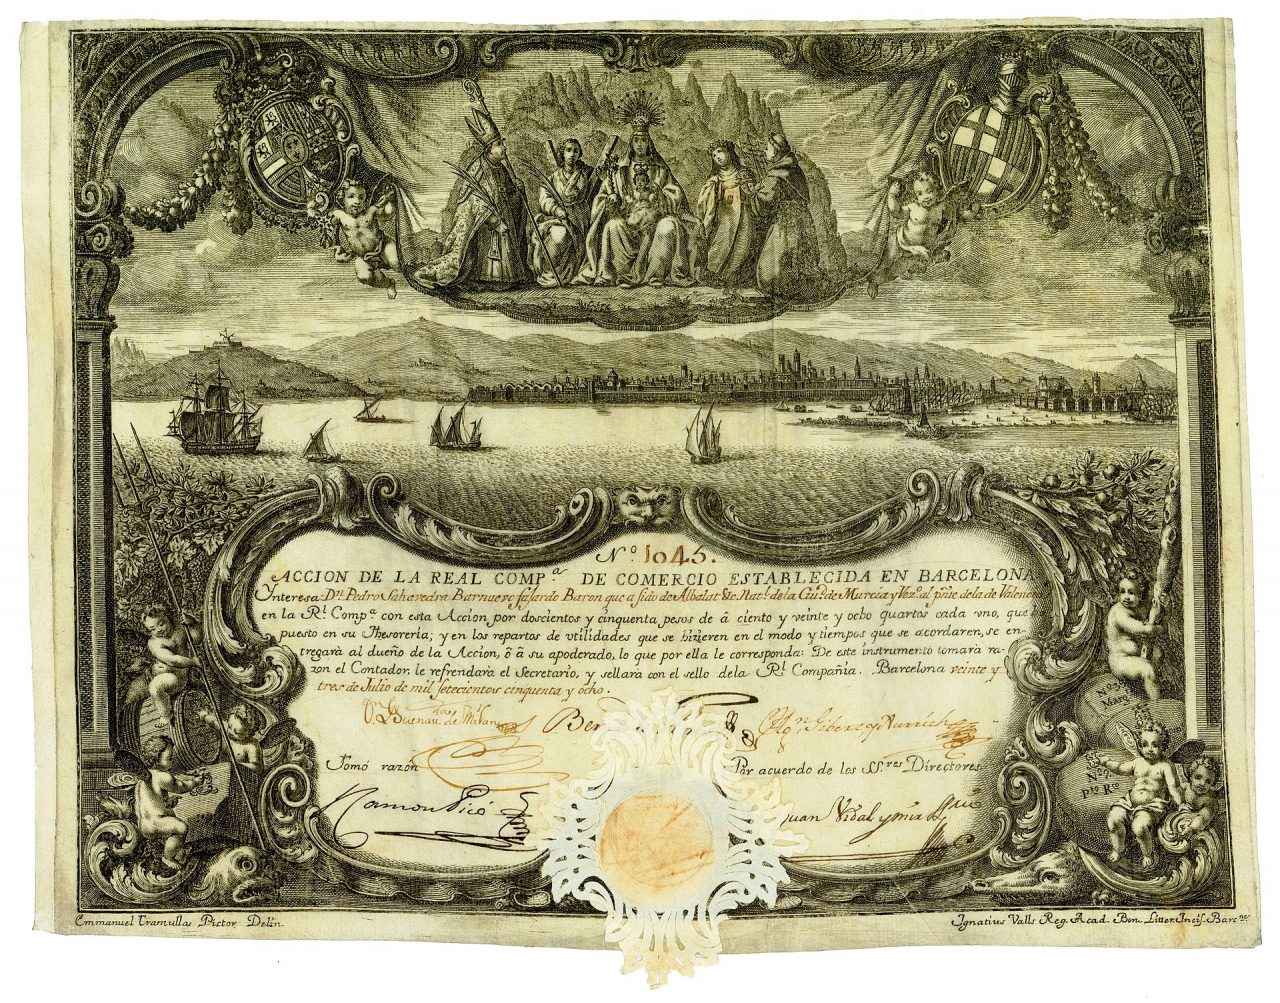 Nº. 1045.
ACCION DE LA REAL COMPª. DE COMERCIO ESTABLECIDA EN BARCELONA
Ynteresa Dn. Pedro Sahavedra Barnuero fajardo Baron que a sido de Albalat de Natl. de la Ciud. de Murcia y Vezº. al pñte de la de Valencia
en la Rl. Compª. con esta Accion por doscientos y cinquenta pesos de â ciento y veinte y ocho quartos cada vno, que
puesto en su Thesoreria; y en los repartos de vtilidades que se hizieren en el modo y tiempos que se acordaren, se en-
tregarà al dueño de la Accion, ô â su apoderado, lo que por ella le corresponda: De este instrumento tomarà ra-
zon el Contador, le refrendarà el Secretario, y sellarà con el sello dela Rl. Compañia. Barcelona veinte y
tres de Julio de mil setecientos cinquenta y ocho.
Buenav. de Milans
Tomó razón
Por acuerdo de los SS.res Directores
Ramon Picó
Juan Vidal y Mir
Nº 3
Marg
Nº 7
Pto Rco
Emmanuel Tramullas Pictor Delin.
Ignatius Valls Reg. Acad. Bon. Litter. Incis. Barc.ne